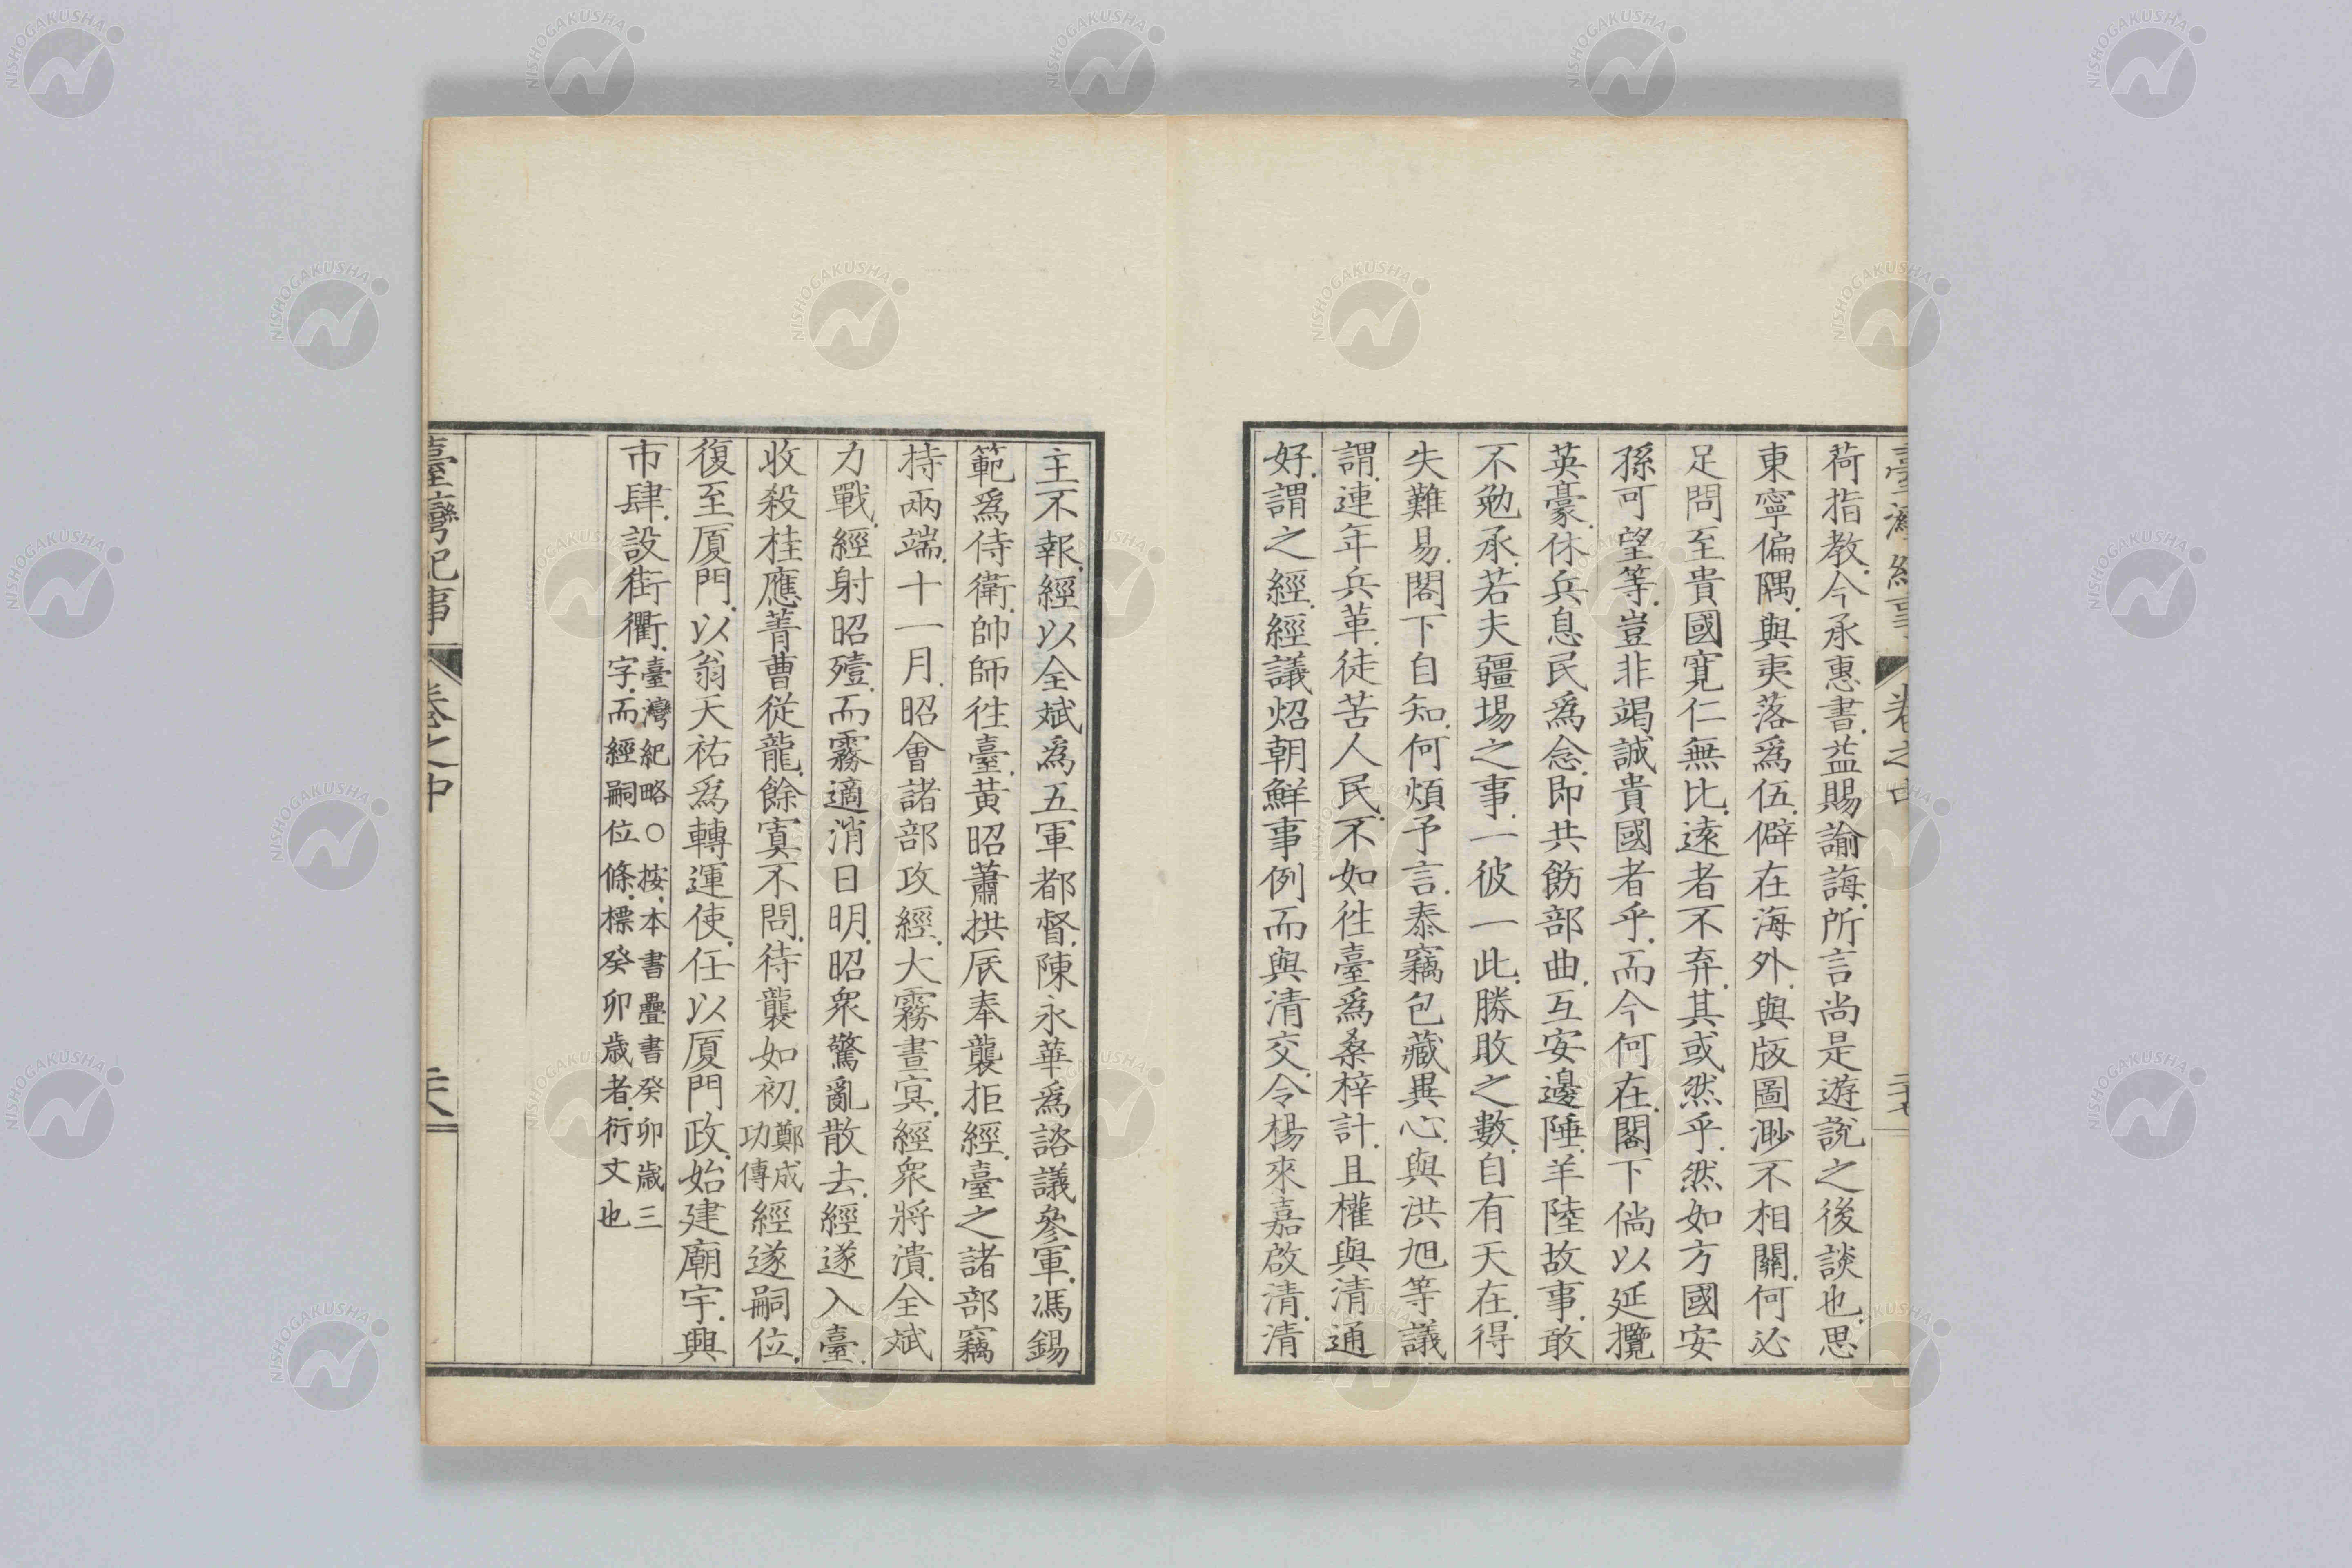 臺灣紀事 卷之中 二十七
荷指教.今承惠書.益賜諭誨.所言尚是遊説之後談也.思
東寧偏隅.與夷落爲伍.僻在海外.與版圖渺不相關.何必
足問至貴國寛仁無比.遠者不弃.其或然乎.然如方國安
孫可望等.豈非竭誠貴國者乎.而今何在.閣下倘以延攬
英豪.休兵息民爲念.即共飭部曲.互安邊陲.羊陸故事.敢
不勉承.若夫疆場之事.一彼一此.勝敗之數.自有天在.得
失難易.閣下自知.何煩予言.泰竊包藏異心.與洪旭等議
謂.連年兵革.徒苦人民.不如徃臺爲桑梓計.且權與清通
好.謂之經.經議炤朝鮮事例而與清交.令楊來嘉啟清.清
主不報.經以全斌爲五軍都督.陳永華爲諮議參軍.馮錫
範爲侍衛.帥師徃臺.黄昭蕭拱辰奉襲拒經.臺之諸部竊
持兩端.十一月.昭會諸部攻經.大霧晝冥.經衆將潰.全斌
力戰.經射昭殪.而霧適消日明.昭衆驚亂散去.經遂入臺.
收殺桂應菁曹從龍.餘寘不問.待襲如初.鄭成功傳經遂嗣位.
復至厦門.以翁天祐爲轉運使.任以厦門政.始建廟宇.興
市肆.設街衢.臺灣紀略○按.本書疊書癸卯歳三
字.而經嗣位條.標癸卯歳者.衍文也
臺灣紀事 卷之中 二十八